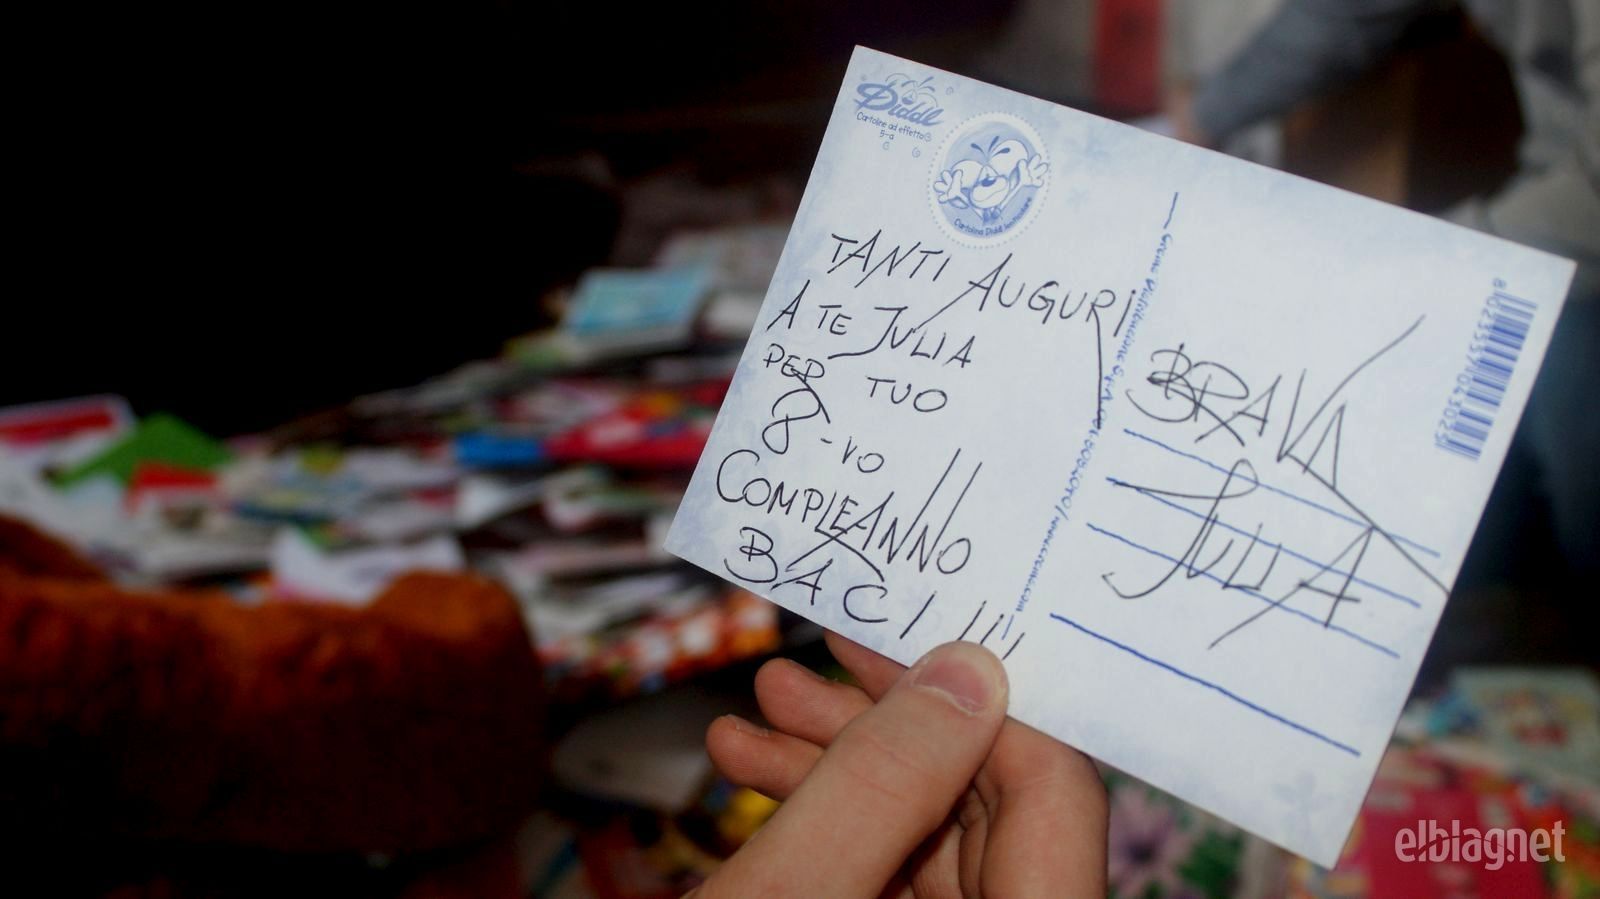 Diddl
Cartoline ad effetto
5-a
Cartolina Diddl lenticolare
TANTI AUGURI
A TE JULIA
PER TUO
8-VO
COMPLEANNO
BACI !!!
BRAVA
JULIA
elblagnet